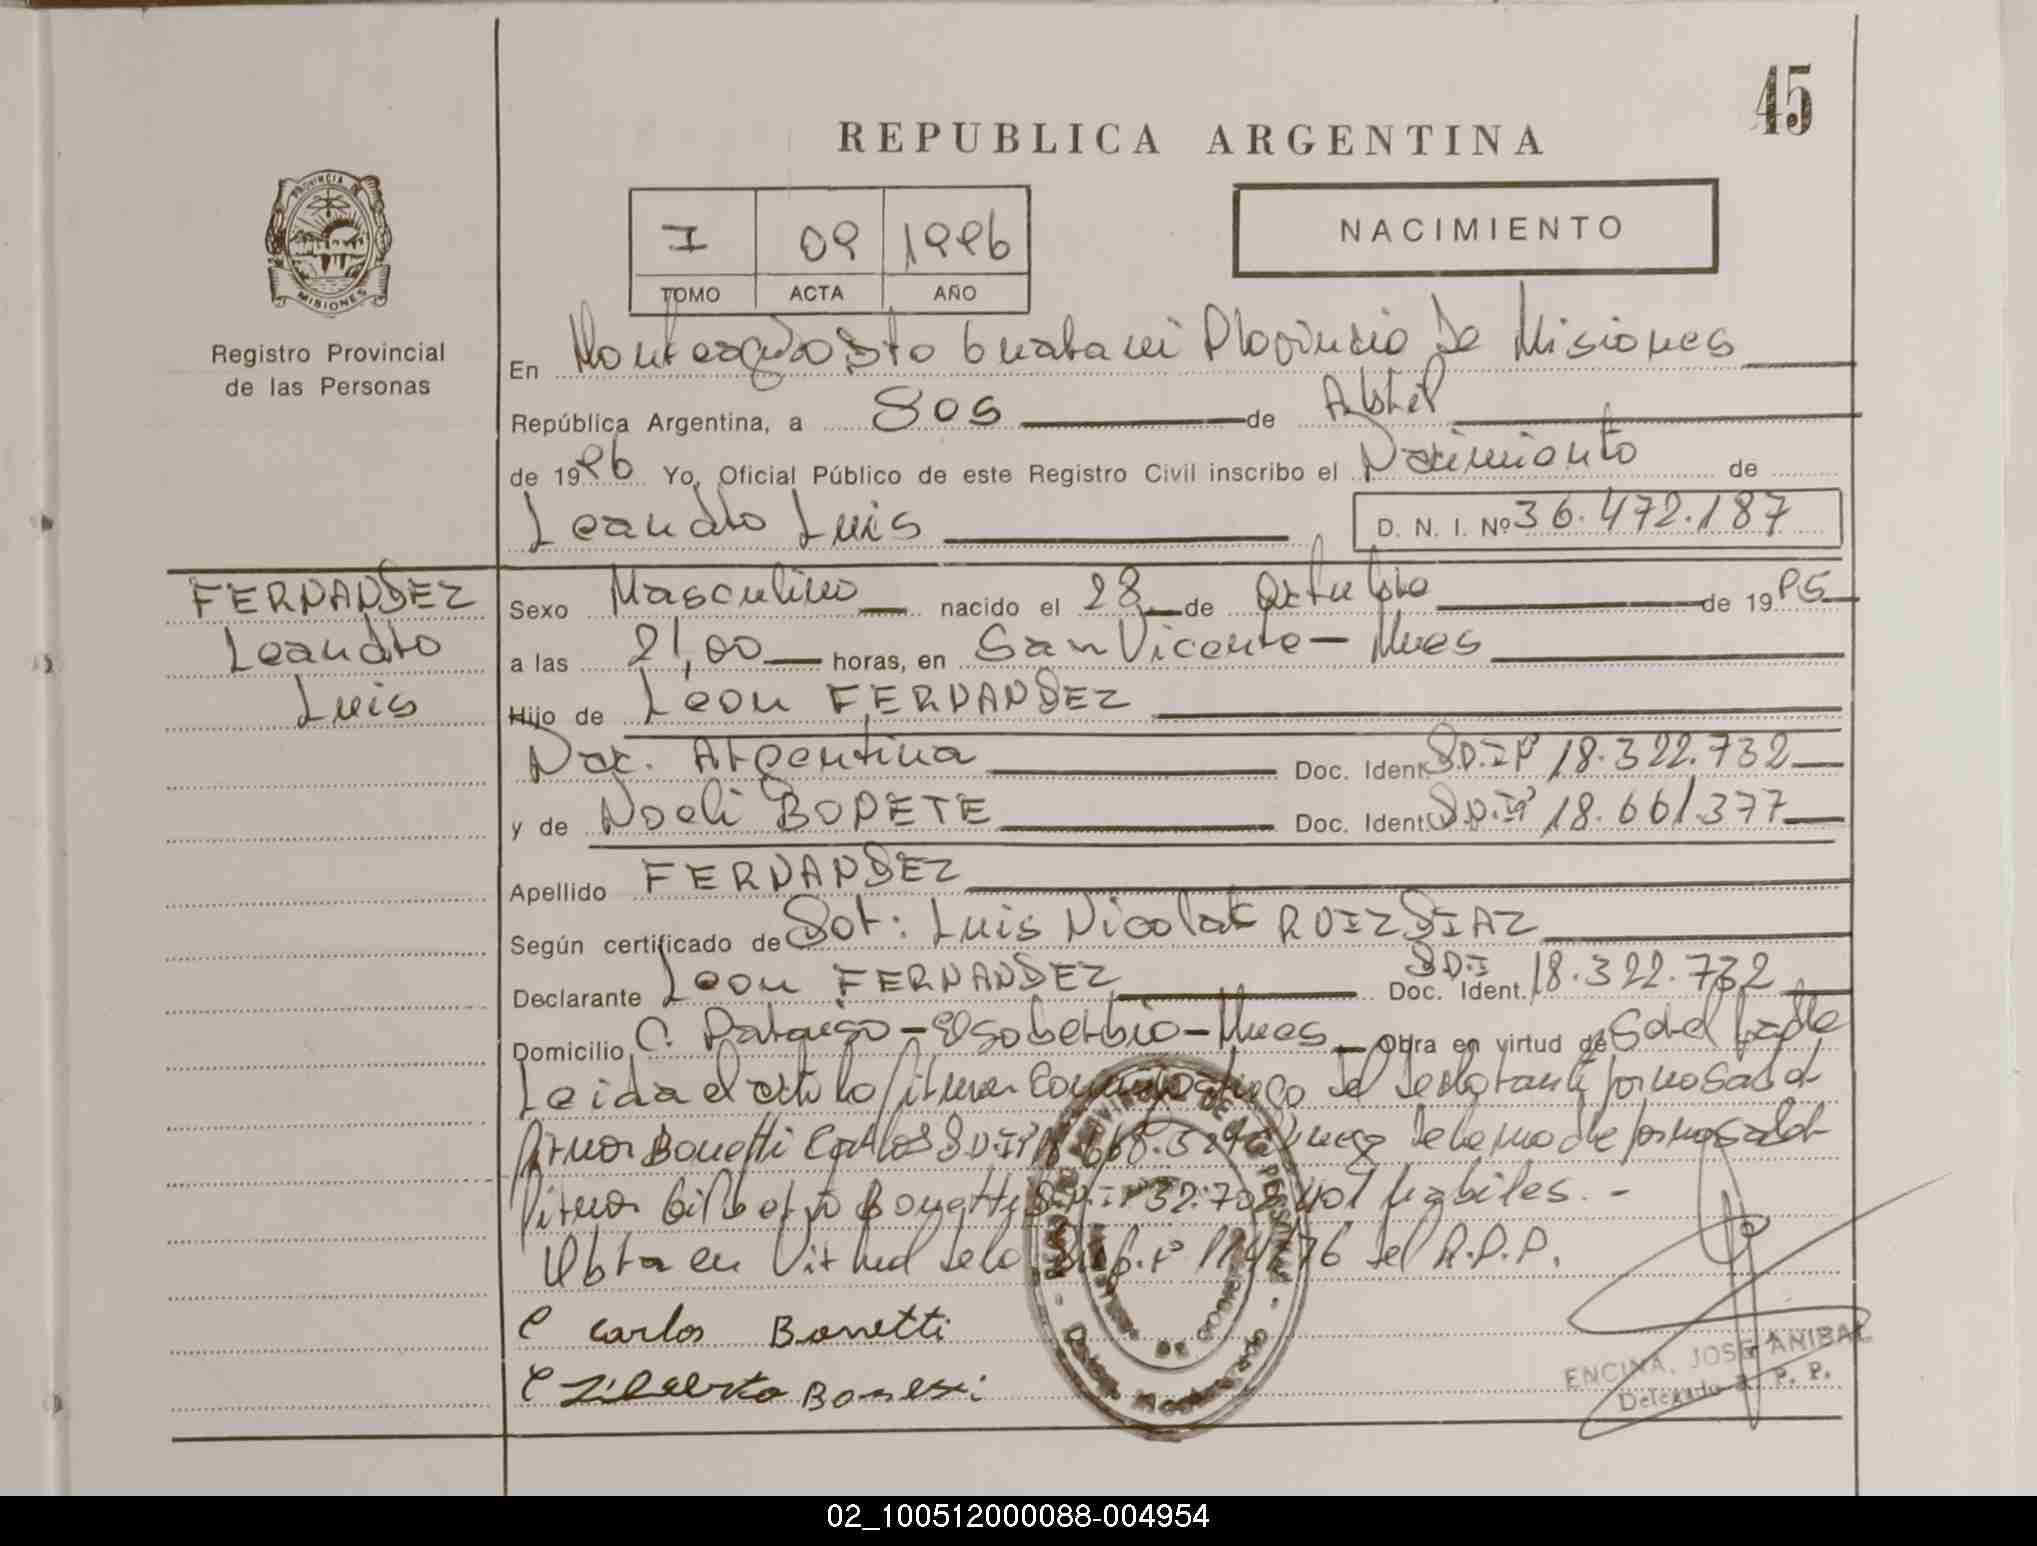 45
REPUBLICA ARGENTINA
PROVINCIA DE
MISIONES
Registro Provincial
de las Personas
I 09 1996
TOMO ACTA AÑO
NACIMIENTO
En Monteagudo Dto Guarani Provincia De Misiones
República Argentina, a Dos de Abril
de 1996 Yo, Oficial Público de este Registro Civil inscribo el Nacimiento de
Leandro Luis D. N. I. Nº 36.472.187
FERNANDEZ
Leandro
Luis
Sexo Masculino nacido el 28 de Octubre de 1995
a las 21,00 horas, en San Vicente - Mnes
Hijo de Leon FERNANDEZ
Nac. Argentina Doc. Ident. D.N.I Nº 18.322.732
y de Noeli BOPETE Doc. Ident. D.N.I Nº 18.661.377
Apellido FERNANDEZ
Según certificado de Dot: Luis Nicolas RUIZ DIAZ
Declarante Leon FERNANDEZ Doc. Ident. D.N.I 18.322.732
Domicilio C. Paraiso - El Soberbio - Mnes Obra en virtud de Ser el padre
Leida el acta la firman Conmigo del declarante
firman Bonetti Carlos D.N.I Nº de la madre
firman Gilberto Bonetti D.N.I Nº habiles. -
Obra en Virtud de la del R.P.P.
Carlos Bonetti
ENCINA, JOSE ANIBAL
Delegado R. P. P.
02_100512000088-004954